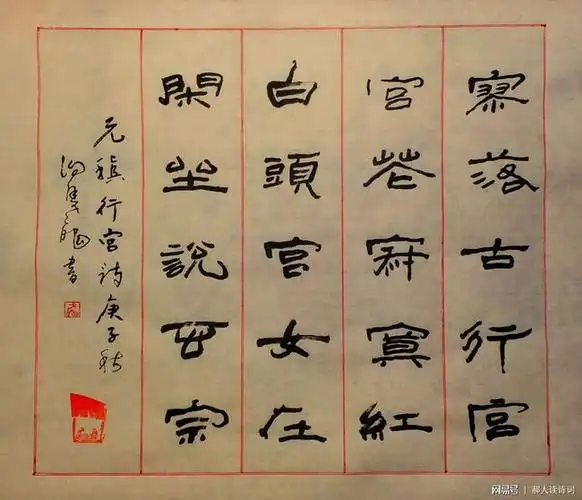 寥落古行宫
宫花寂寞紅
白頭宫女在
閑坐說玄宗
元稹行宫诗庚子秋
書
网易号 | 郝人读诗词